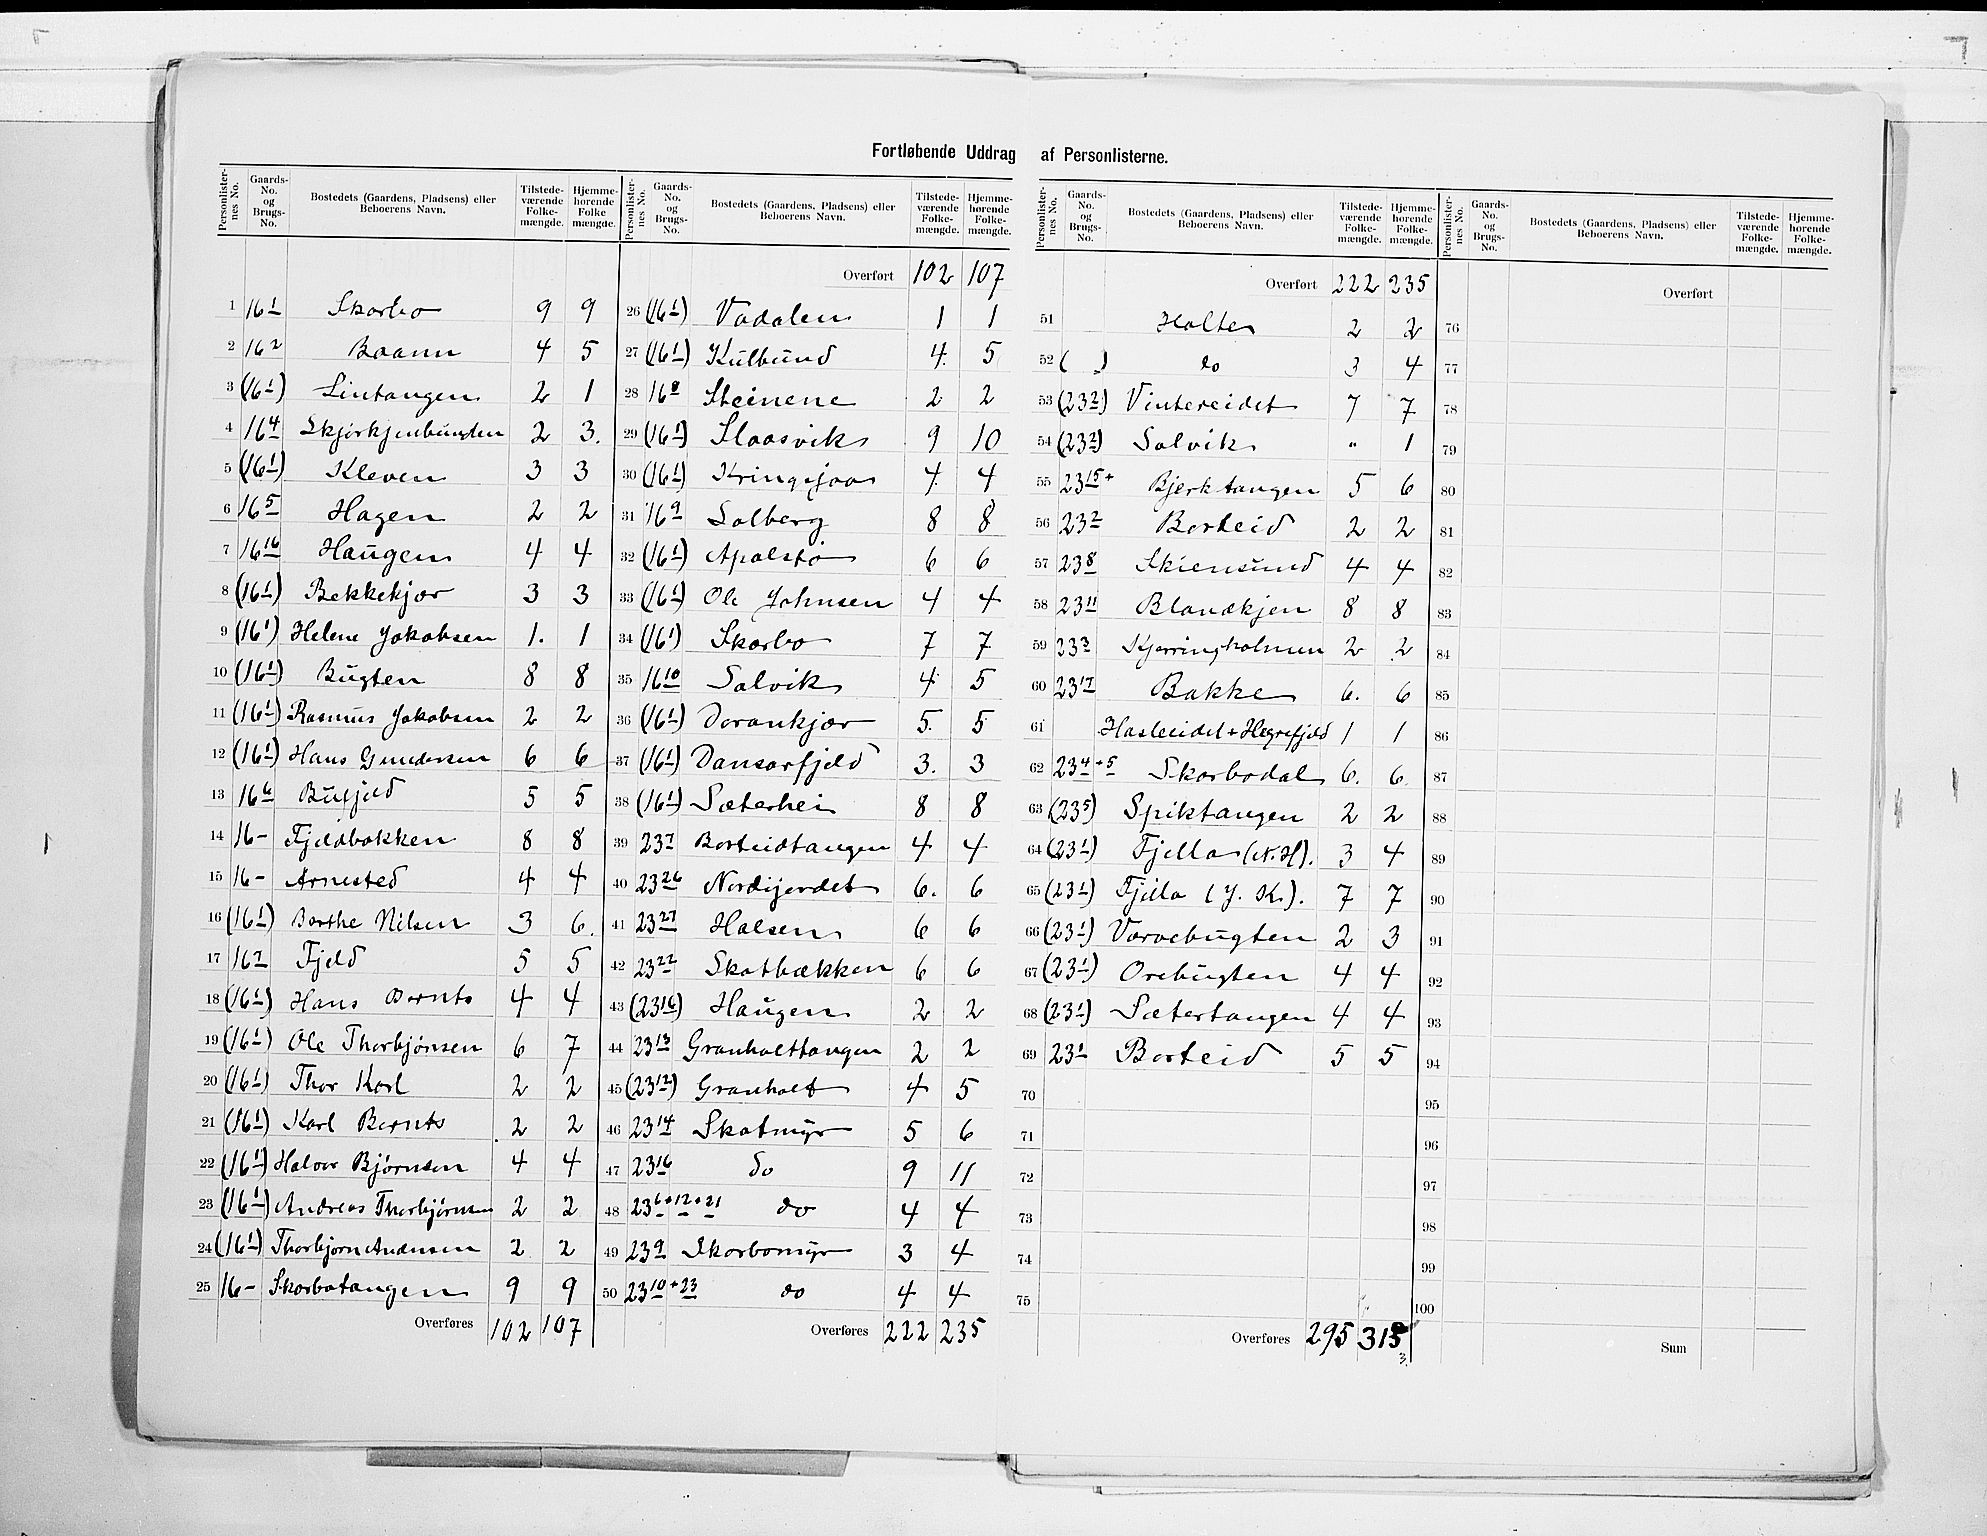 Fortløbende Uddrag af Personlisterne.
Personlister-nes No. | Gaards-No. og Brugs-No. | Bostedets (Gaardens, Pladsens) eller Beboerens Navn. | Tilstede-værende Folke-mængde. | Hjemme-hørende Folke mængde.
1 16 1 Skarbo 9 9
2 16 2 Baann 4 5
3 (16 1) Lintangen 2 1
4 16 4 Skjørkjenbunden 2 3.
5 (16 1) Kleven 3 3
6 16 5 Hagen 2 2
7 16 16 Haugen 4 4
8 (16 1) Bekkekjær 3 3
9 (16 1) Helene Jakobsen 1. 1
10 (16 1) Bugten 8 8
11 (16 1) Rasmus Jakobsen 2 2
12 (16 1) Hans Gundersen 6 6
13 16 6 Bufjeld 5 5
14 16 – Fjeldbakken 8 8
15 16 – Arnested 4 4
16 (16 1) Berthe Nilsen 3 6.
17 16 7 Fjeld 5 5
18 (16 1) Hans Bernts 4 4
19 (16 1) Ole Thorbjörnsen 6 7
20 (16 1) Thor Karl 2 2
21 (16 1) Karl Bernts 2 2
22 (16 1) Halvor Bjørnsen 4 4
23 (16 1) Andreas Thorbjørnsen 2 2
24 (16 1) Thorbjørn Andersen 2 2
25 16 – Skarbotangen 9 9
Overføres 102 107
Personlister-nes No. | Gaards-No. og Brugs-No. | Bostedets (Gaardens, Pladsens) eller Beboerens Navn. | Tilstede-værende Folke-mængde. | Hjemme-hørende Folke-mængde.
Overført 102 107
26 (16 1) Vadalen 1 1
27 (16 1) Kulbund 4. 5
28 16 8 Steinene 2 2
29 (16 1) Slaasvik 9 10
30 (16 1) Kringsjaa 4 4
31 16 9 Solberg 8 8
32 (16 1) Apalstø 6 6
33 (16 1) Ole Johnsen 4 4
34 (16 1) Skarbo 7 7
35 16 10 Solvik 4 5
36 (16 1) Dorankjær 5. 5
37 (16 1) Dansarfjeld 3. 3
38 (16 1) Sæterhei 8 8
39 23 7 Borteidtangen 4 4
40 23 26 Nordijordet 6. 6
41 23 27 Halsen 6 6
42 23 22 Skatbækken 6 6
43 (23 16) Haugen 2 2
44 23 13 Granholttangen 2 2
45 (23 12) Granholt 4 5
46 23 14 Skatmyr 5 6
47 23 16 do 9 11
48 23 6 + 12 + 21 do 4 4
49 23 9 Skarbomyr 3 4
50 23 10 + 23 do 4 4
Overføres 222 235
Personlister-nes No. | Gaards-No. og Brugs-No. | Bostedets (Gaardens, Pladsens) eller Beboerens Navn. | Tilstede-værende Folke-mængde. | Hjemme-hørende Folke-mængde.
Overført 222 235
51 Holte 2 2
52 ( „ ) do 3 4
53 (23 2) Vintereidet 7 7
54 (23 2) Solvik " 1
55 23 15 + Bjerktangen 5 6
56 23 2 Borteid 2 2
57 23 8 Skiensund 4 4
58 23 11 Blandkjen 8 8
59 23 3 Kjerringholmen 2 2
60 23 17 Bakke 6. 6
61 Hasleeidet + Hegrefjeld 1 1
62 23 4 + 5 Skarbodal 6. 6
63 (23 5) Spiktangen 2 2
64 (23 1) Fjella (N. H). 3 4
65 (23 1) Fjella (J. K.). 7 7
66 (23 1) Varvebugten 2 3
67 (23 1) Orebugten 4 4
68 (23 1) Sætertangen 4 4
69 23 1 Borteid 5 5
70
71
72
73
74
75
Overføres 295 315
3.
Personlister-nes No. | Gaards-No. og Brugs-No. | Bostedets (Gaardens, Pladsens) eller Beboerens Navn. | Tilstede-værende Folke-mængde. | Hjemme-hørende Folke-mængde.
Overført
76
77
78
79
80
81
82
83
84
85
86
87
88
89
90
91
92
93
94
95
96
97
98
99
100
Sum